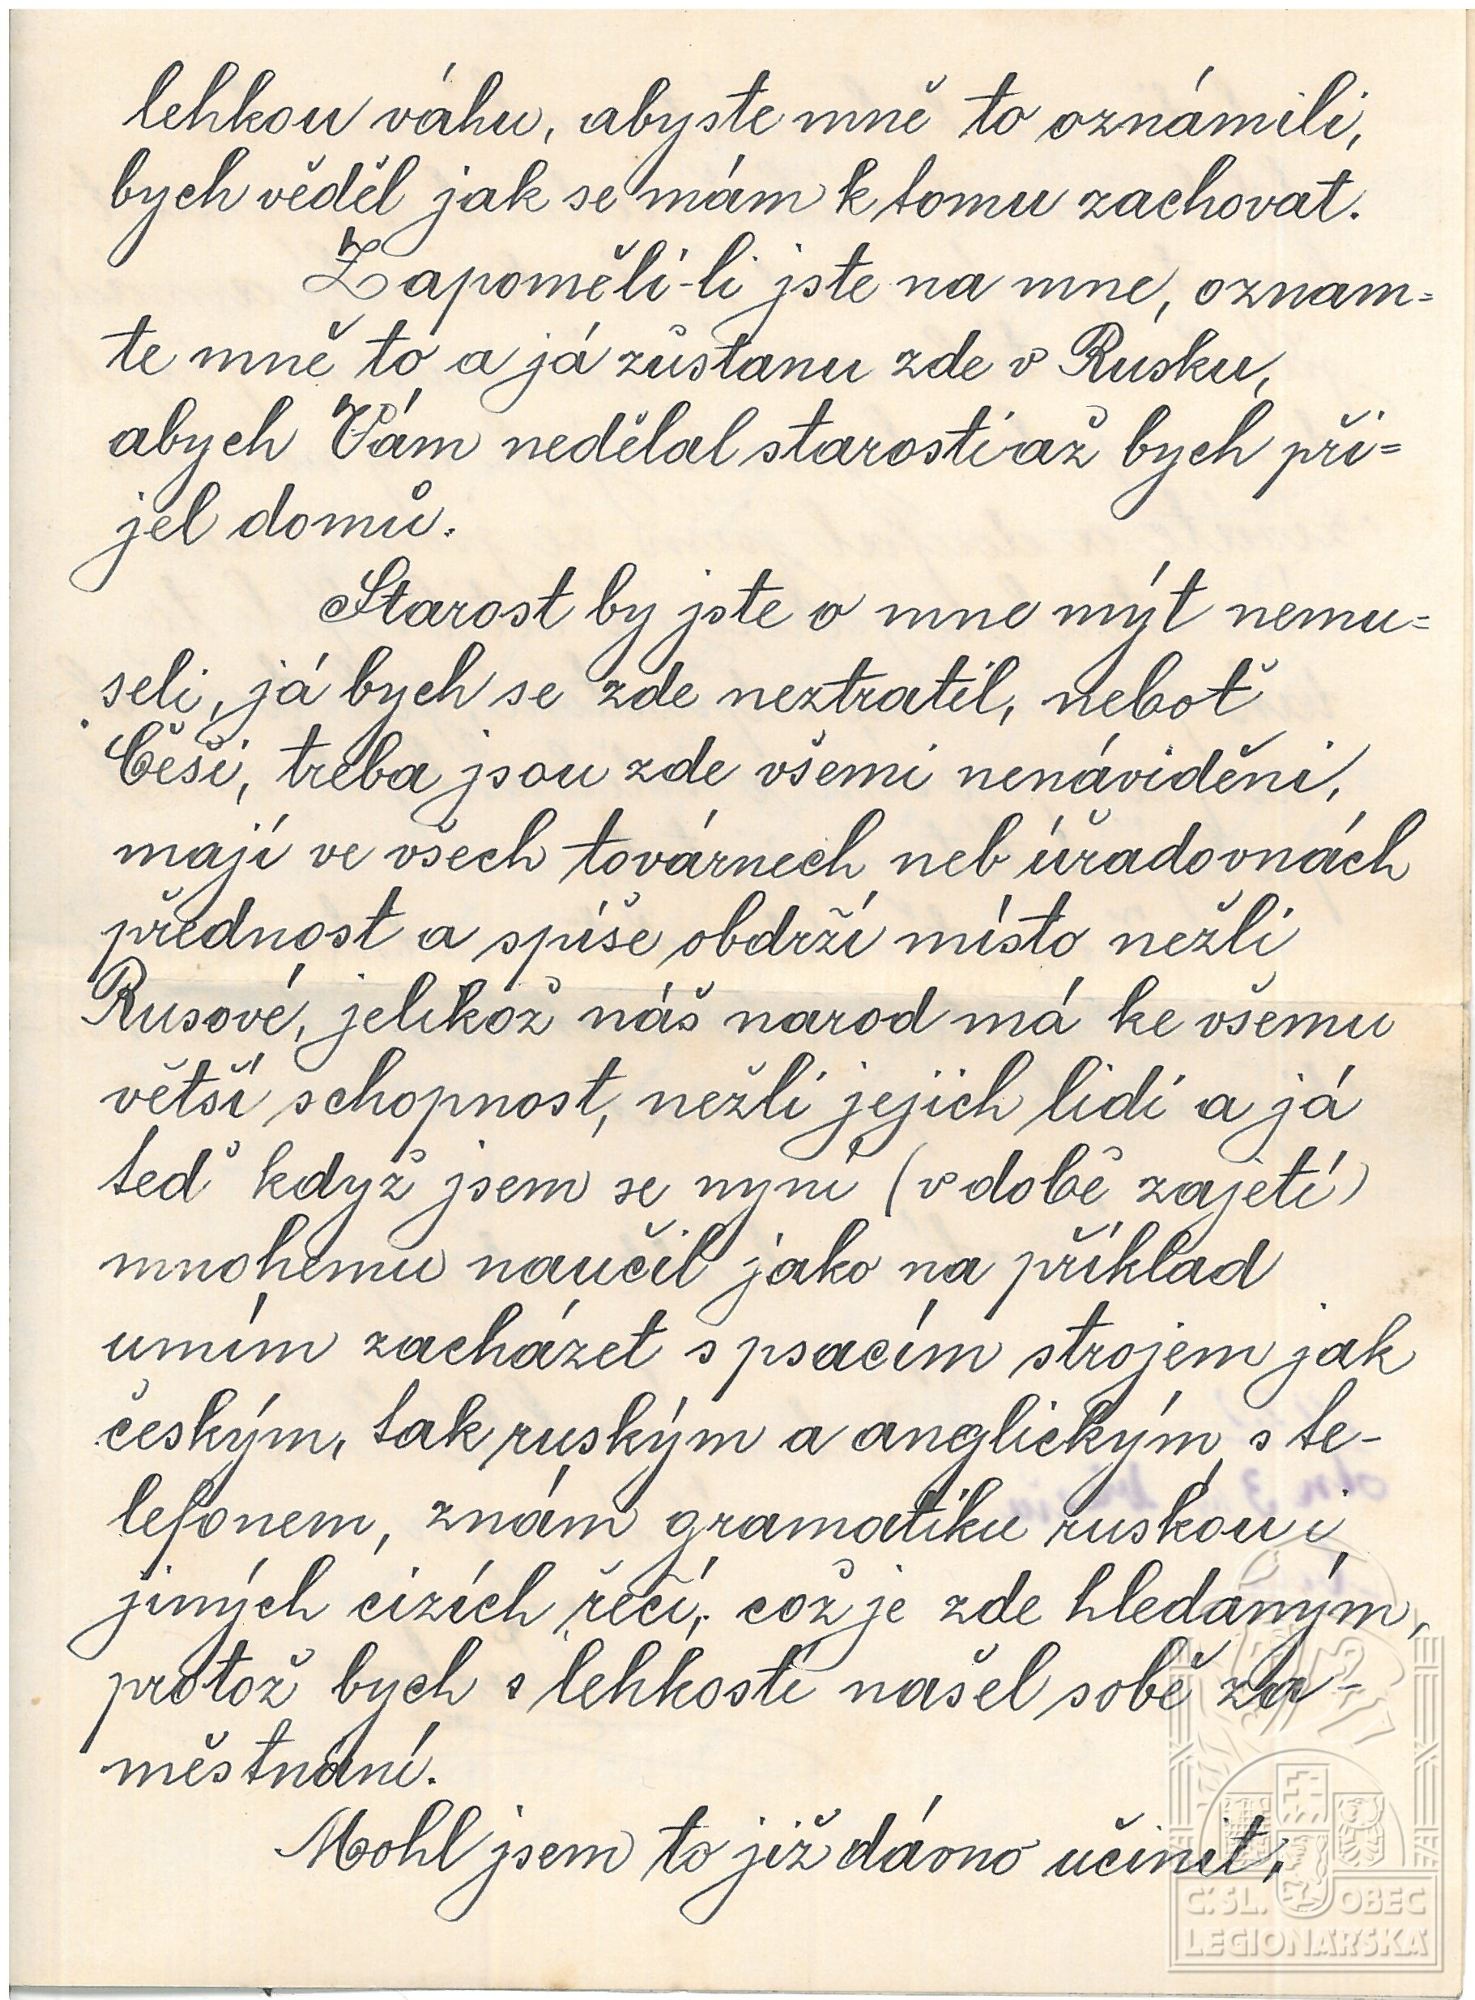 lehkou váhu, abyste mně to oznámili,
bych věděl jak se mám k tomu zachovat.
Zapoměli-li jste na mne, oznam=
te mně to a já zůstanu zde v Rusku,
abych Vám nedělal starosti až bych při=
jel domů.
Starost by jste o mne mýt nemu=
seli, já bych se zde neztratil, neboť
Češi, treba jsou zde všemi nenáviděni,
mají ve všech továrnech neb úřadovnách
přednost a spíše obdrží místo nežli
Rusové, jelikož náš narod má ke všemu
větší schopnost, nežli jejich lidi a já
teď když jsem se nyní (v době zajetí)
mnohemu naučil jako na příklad
umím zacházet s psacím strojem jak
českým, tak ruským a anglickým, s te-
lefonem, znám gramatiku ruskou i
jiných cizích řečí, což je zde hledaným,
protož bych s lehkostí našel sobě za-
městnání.
Mohl jsem to již dávno učinit,
Č.SL. OBEC
LEGIONÁŘSKÁ